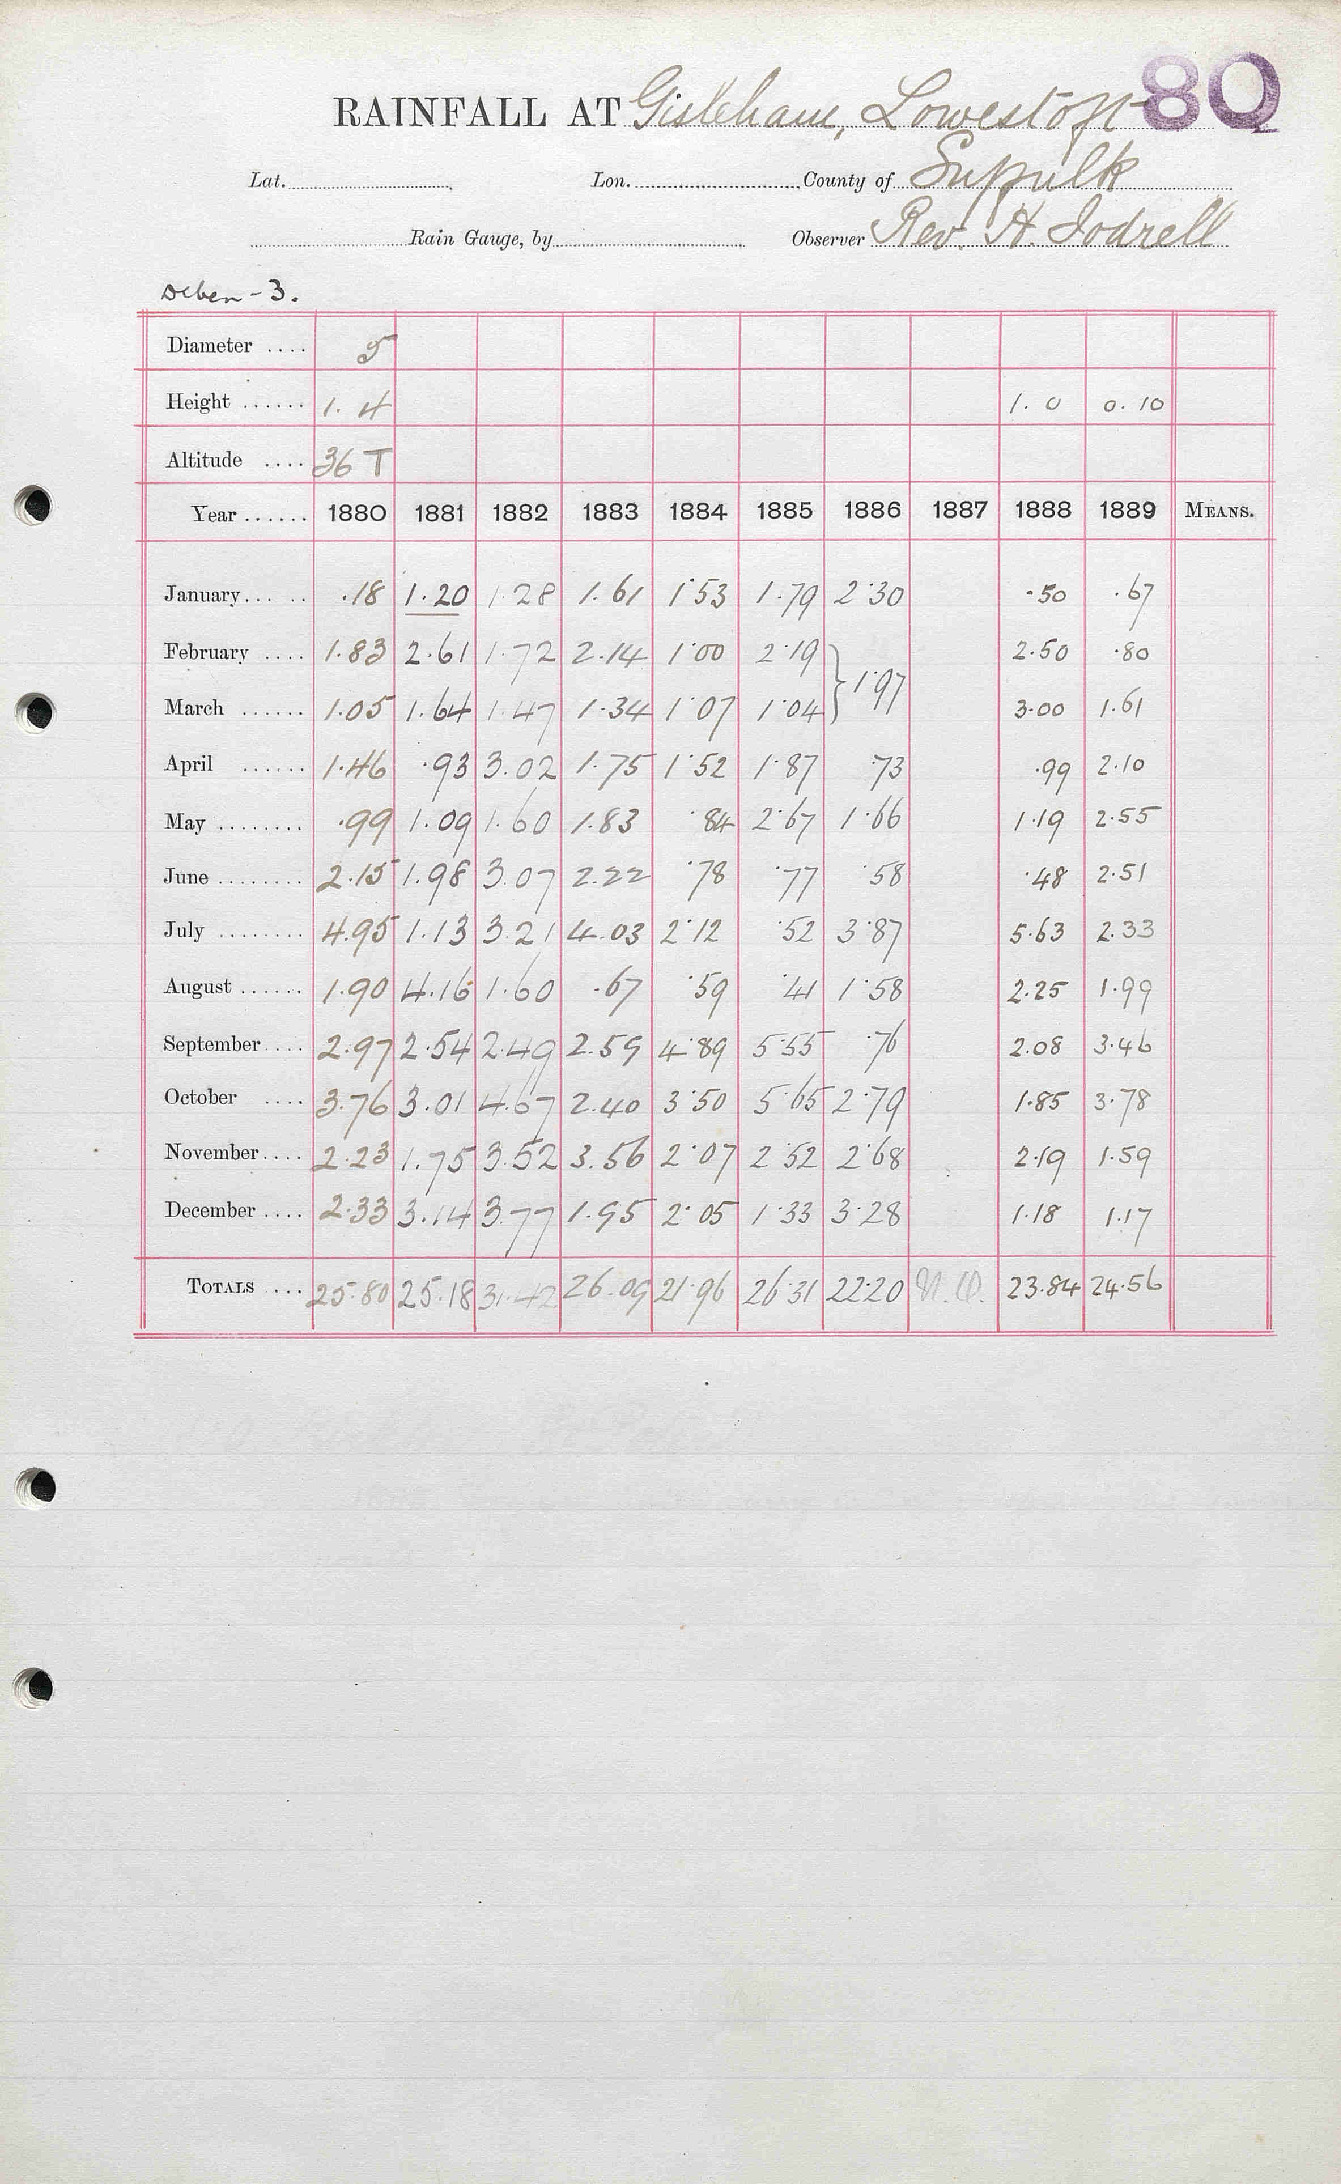 RAINFALL AT Gisleham, Lowestoft 80
Lat. Lon. County of Suffolk
Rain Gauge, by Observer Rev. H. Jodrell
Deben - 3.
Diameter .... 5
Height ...... 1. 4 1. 0 0. 10
Altitude .... 36 T
Year ...... 1880 1881 1882 1883 1884 1885 1886 1887 1888 1889 MEANS.
January ... .. .18 1.20 1.28 1.61 1.53 1.79 2.30 .50 .67
February .... 1.83 2.61 1.72 2.14 1.00 2.19 } 1.97 2.50 .80
March ...... 1.05 1.64 1.47 1.34 1.07 1.04 3.00 1.61
April ...... 1.46 .93 3.02 1.75 1.52 1.87 .73 .99 2.10
May ........ .99 1.09 1.60 1.83 .84 2.67 1.66 1.19 2.55
June ........ 2.15 1.98 3.07 2.22 .78 .77 .58 .48 2.51
July ........ 4.95 1.13 3.21 4.03 2.12 .52 3.87 5.63 2.33
August ...... 1.90 4.16 1.60 .67 .59 .41 1.58 2.25 1.99
September .... 2.97 2.54 2.49 2.59 4.89 5.55 .76 2.08 3.46
October .... 3.76 3.01 4.67 2.40 3.50 5.65 2.79 1.85 3.78
November .... 2.23 1.75 3.52 3.56 2.07 2.52 2.68 2.19 1.59
December .... 2.33 3.14 3.77 1.95 2.05 1.33 3.28 1.18 1.17
TOTALS ... 25.80 25.18 31.42 26.09 21.96 26.31 22.20 23.84 24.56